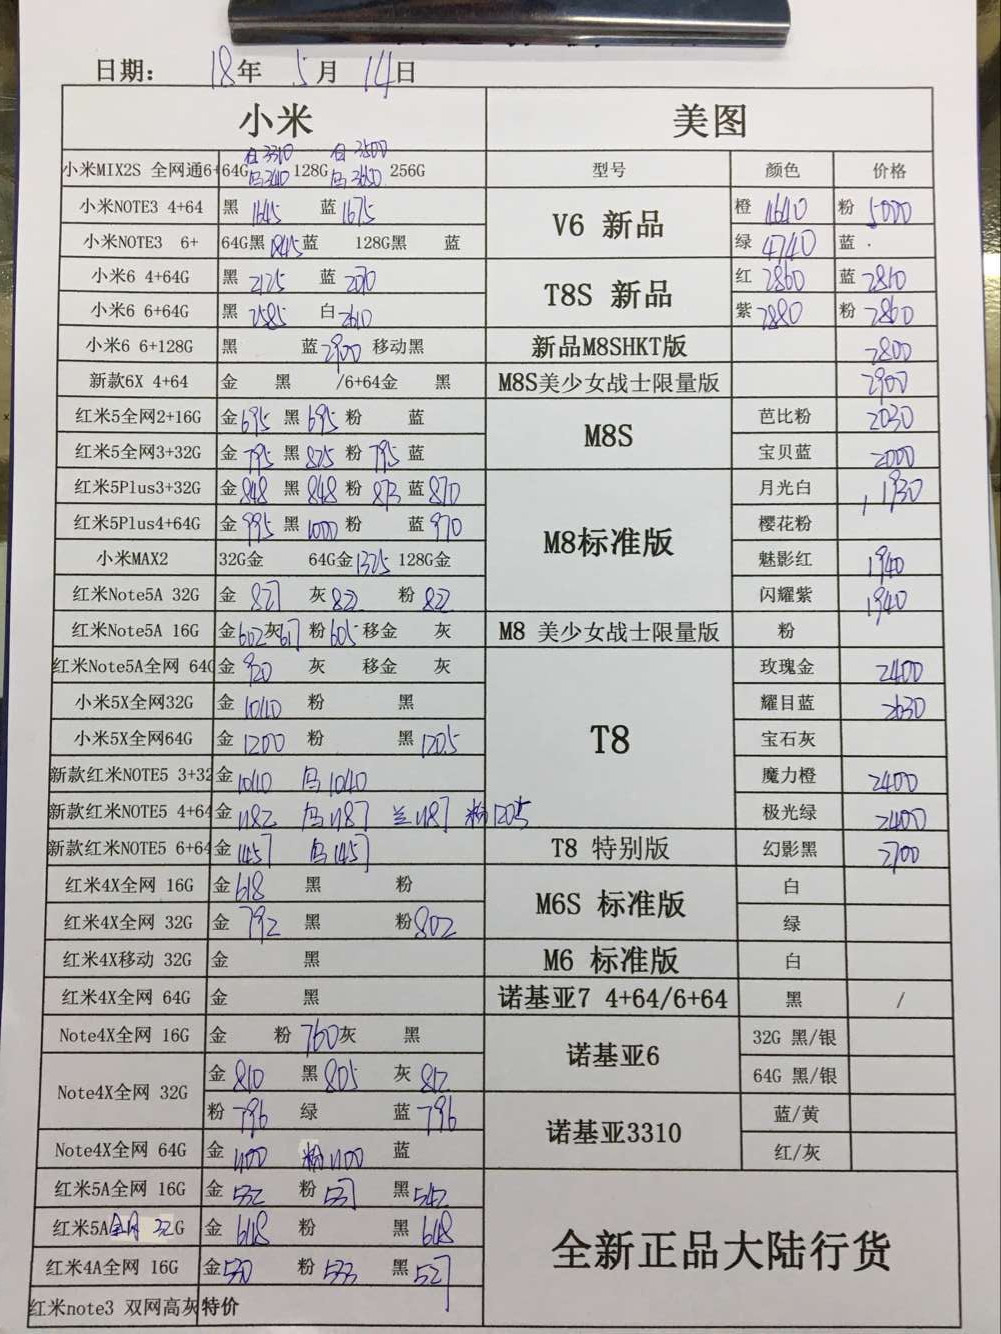 日期: 18年 5月 14日
小米 美图
小米MIX2S 全网通6+64G 白3310 128G 白3500 256G 型号 颜色 价格
小米NOTE3 4+64 黑 1645 蓝 1675 V6 新品 橙 4640 粉 5000
小米NOTE3 6+ 64G黑 1845 蓝 128G黑 蓝 绿 4740 蓝
小米6 4+64G 黑 2125 蓝 T8S 新品 红 2860 蓝 2810
小米6 6+64G 黑 2585 白 2610 紫 2880 粉 2860
小米6 6+128G 黑 蓝 2900 移动黑 新品M8SHKT版 2800
新款6X 4+64 金 黑 /6+64金 黑 M8S美少女战士限量版 2900
红米5全网2+16G 金 695 黑 695 粉 蓝 M8S 芭比粉 2030
红米5全网3+32G 金 795 黑 825 粉 795 蓝 宝贝蓝 2000
红米5Plus3+32G 金 848 黑 848 粉 873 蓝 870 M8标准版 月光白 1930
红米5Plus4+64G 金 995 黑 1000 粉 蓝 970 樱花粉
小米MAX2 32G金 64G金 1325 128G金 魅影红 1940
红米Note5A 32G 金 827 灰 822 粉 822 闪耀紫 1940
红米Note5A 16G 金 602 灰 617 粉 605 移金 灰 M8 美少女战士限量版 粉
红米Note5A全网 64G 金 920 灰 移金 灰 T8 玫瑰金 2400
小米5X全网32G 金 1010 粉 黑 耀目蓝 2630
小米5X全网64G 金 1200 粉 黑 1205 宝石灰
新款红米NOTE5 3+32 金 1040 乌 1040 魔力橙 2400
新款红米NOTE5 4+64 金 1182 乌 1187 兰 1187 粉 1205 极光绿 2400
新款红米NOTE5 6+64 金 1457 乌 1457 T8 特别版 幻影黑 2700
红米4X全网 16G 金 618 黑 粉 M6S 标准版 白
红米4X全网 32G 金 792 黑 粉 802 绿
红米4X移动 32G 金 黑 M6 标准版 白
红米4X全网 64G 金 黑 诺基亚7 4+64/6+64 黑 /
Note4X全网 16G 金 粉 760 灰 黑 诺基亚6 32G 黑/银
Note4X全网 32G 金 810 黑 805 灰 812 64G 黑/银
粉 796 绿 蓝 796 诺基亚3310 蓝/黄
Note4X全网 64G 金 1100 粉 1100 蓝 红/灰
红米5A全网 16G 金 532 粉 537 黑 542 全新正品大陆行货
红米5A全网 32G 金 648 粉 黑 648
红米4A全网 16G 金 530 粉 533 黑 527
红米note3 双网高灰 特价